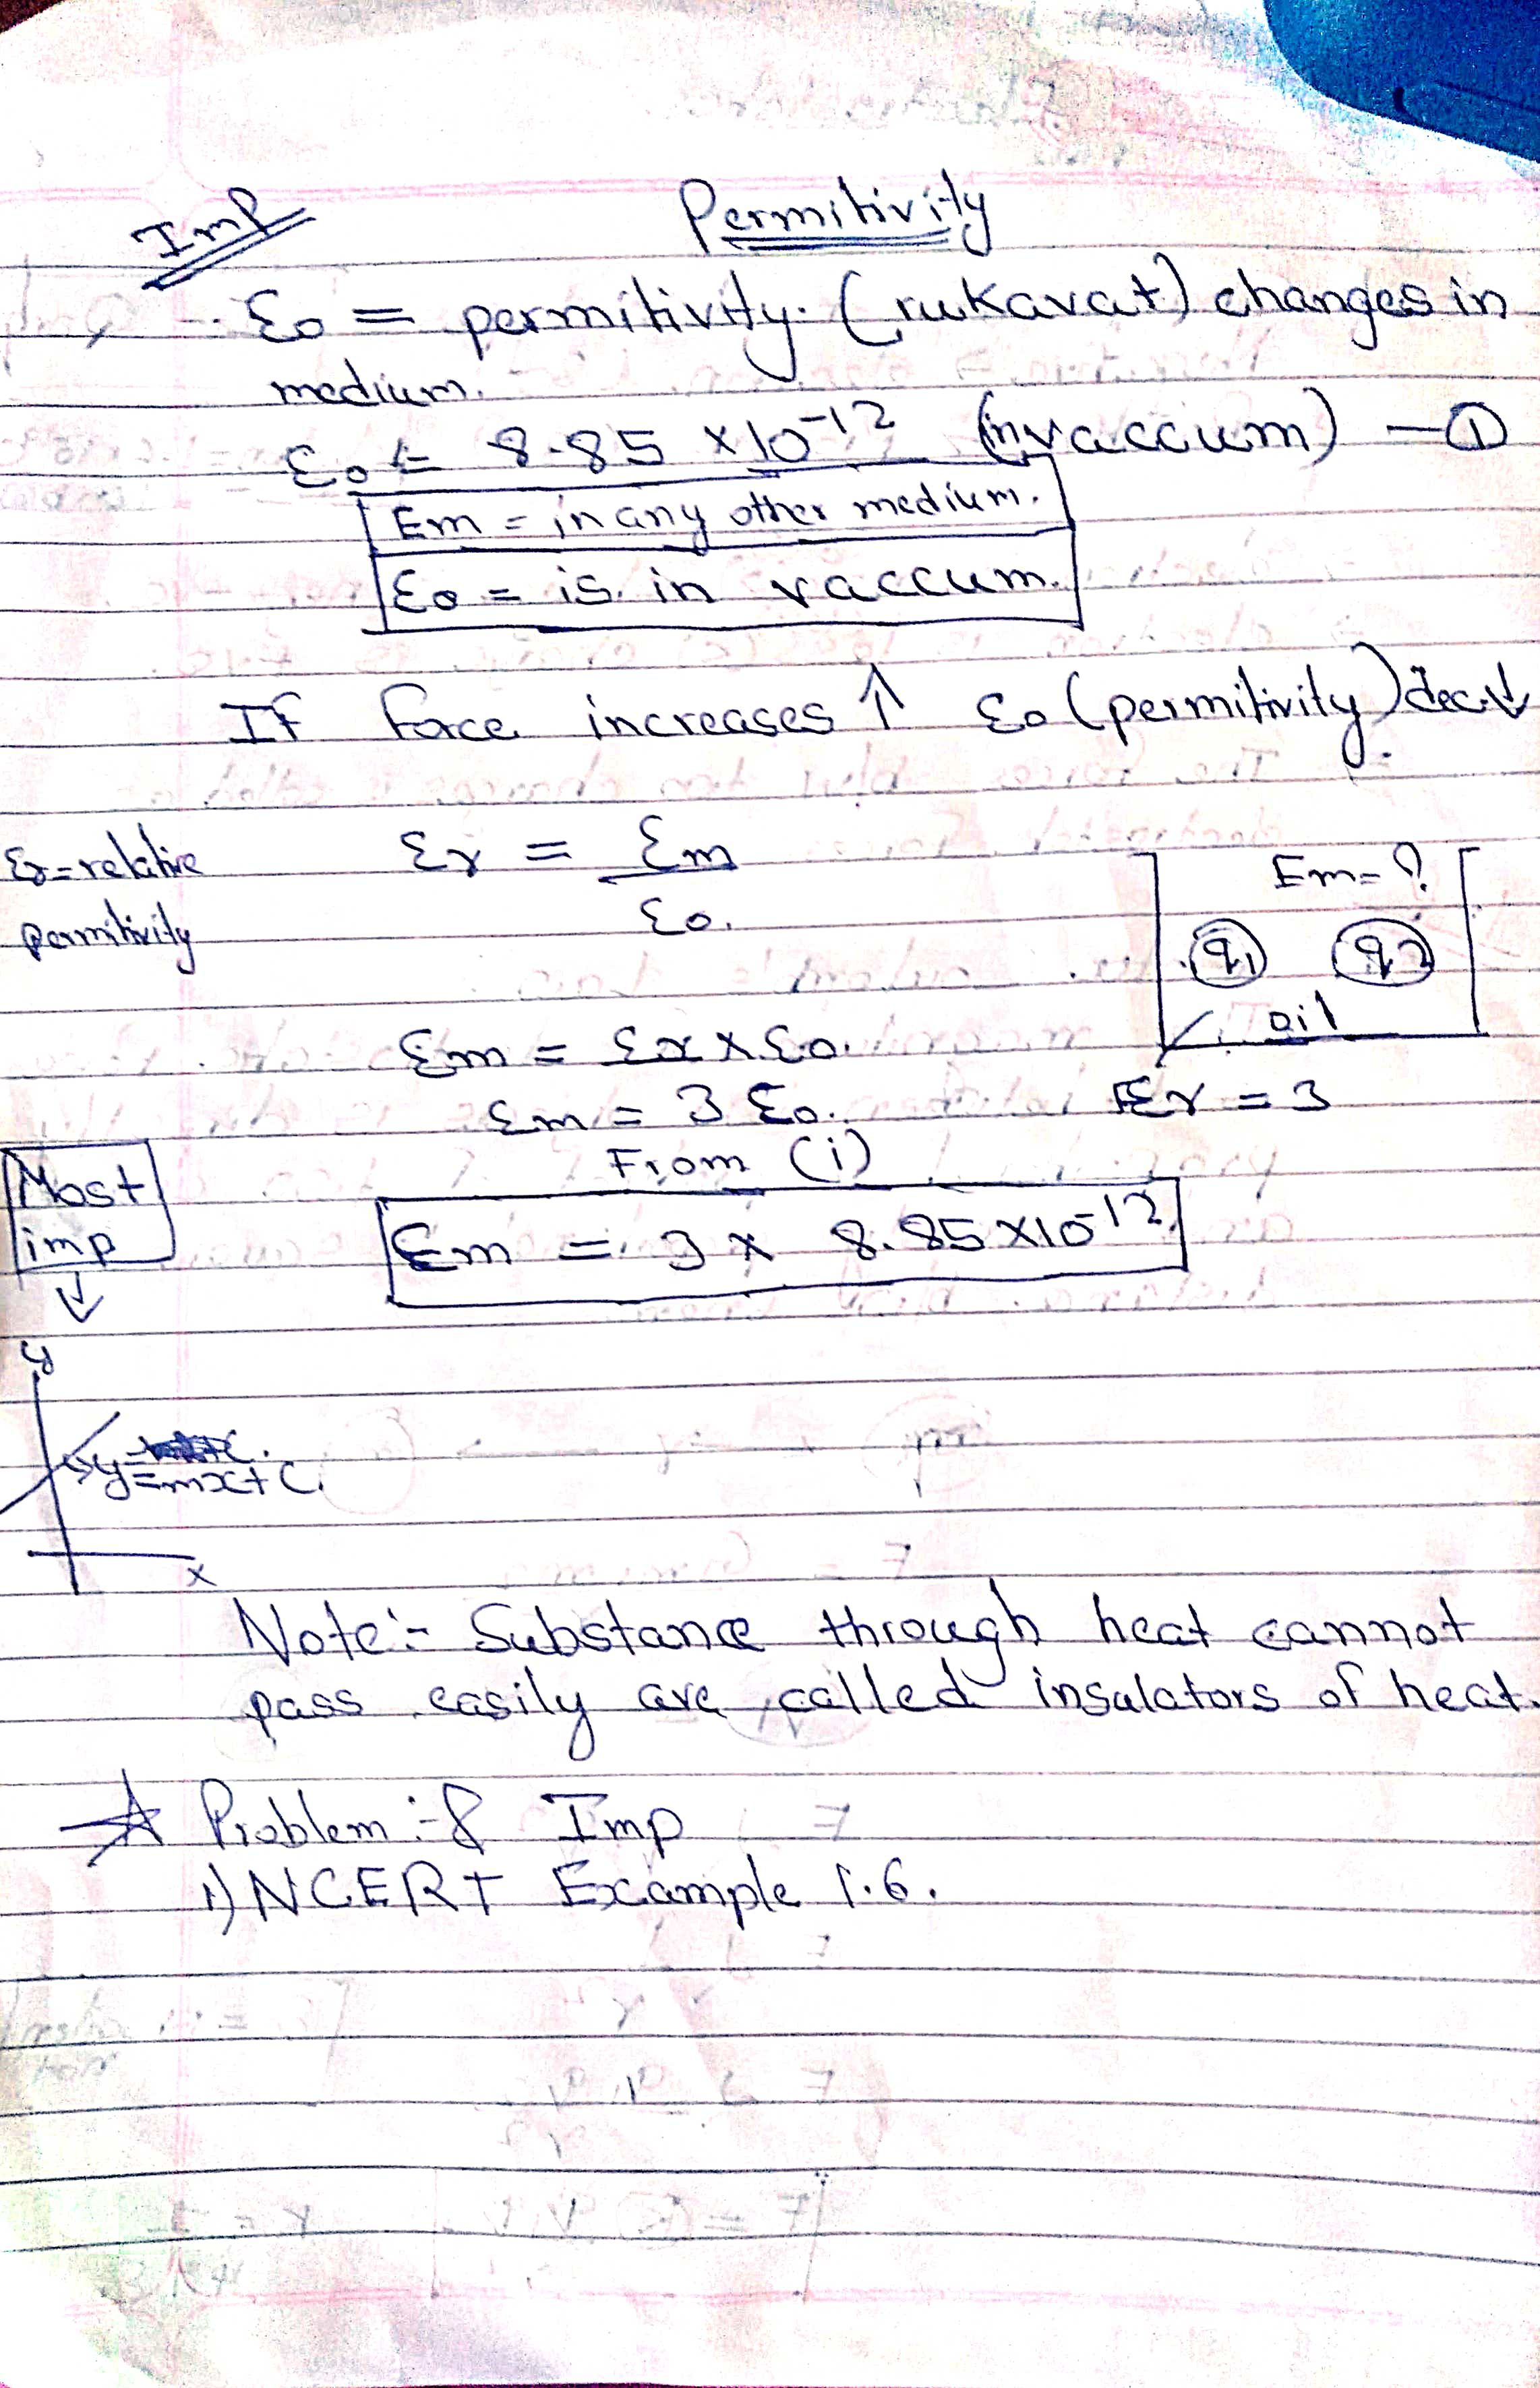 Imp
Permitivity
ε0 = permitivity. (rukavat) changes in
medium.
ε0 = 8.85 x 10-12 (in vaccum) - ①
Em = in any other medium.
ε0 = is in vaccum.
If Force increases ↑ ε0 (permitivity) dec.↓
εr = relative
permitivity
εr = εm
ε0.
Em = ?
q1 q2
oil
εm = εr x ε0.
εm = 3 ε0.
Er = 3
From (i)
Most
imp
↓
εm = 3 x 8.85 x10-12
y
y
= mx + c.
x
Note:- Substance through heat cannot
pass easily are called insulators of heat.
Problem :- Imp
1) NCERT Example 1.6.